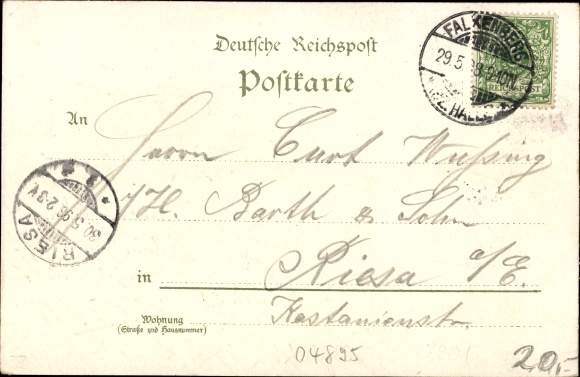 Deutsche Reichspost
Postkarte
FALKENBERG
29.5.98
HALLE
REICHSPOST
An
Herrn Curt Wußing
J/H. Barth & Sohn
in Riesa a/E.
Wohnung
(Straße und Hausnummer)
Kastanienstr.
RIESA
30.5.98. 2-3 V.
04895
20,-